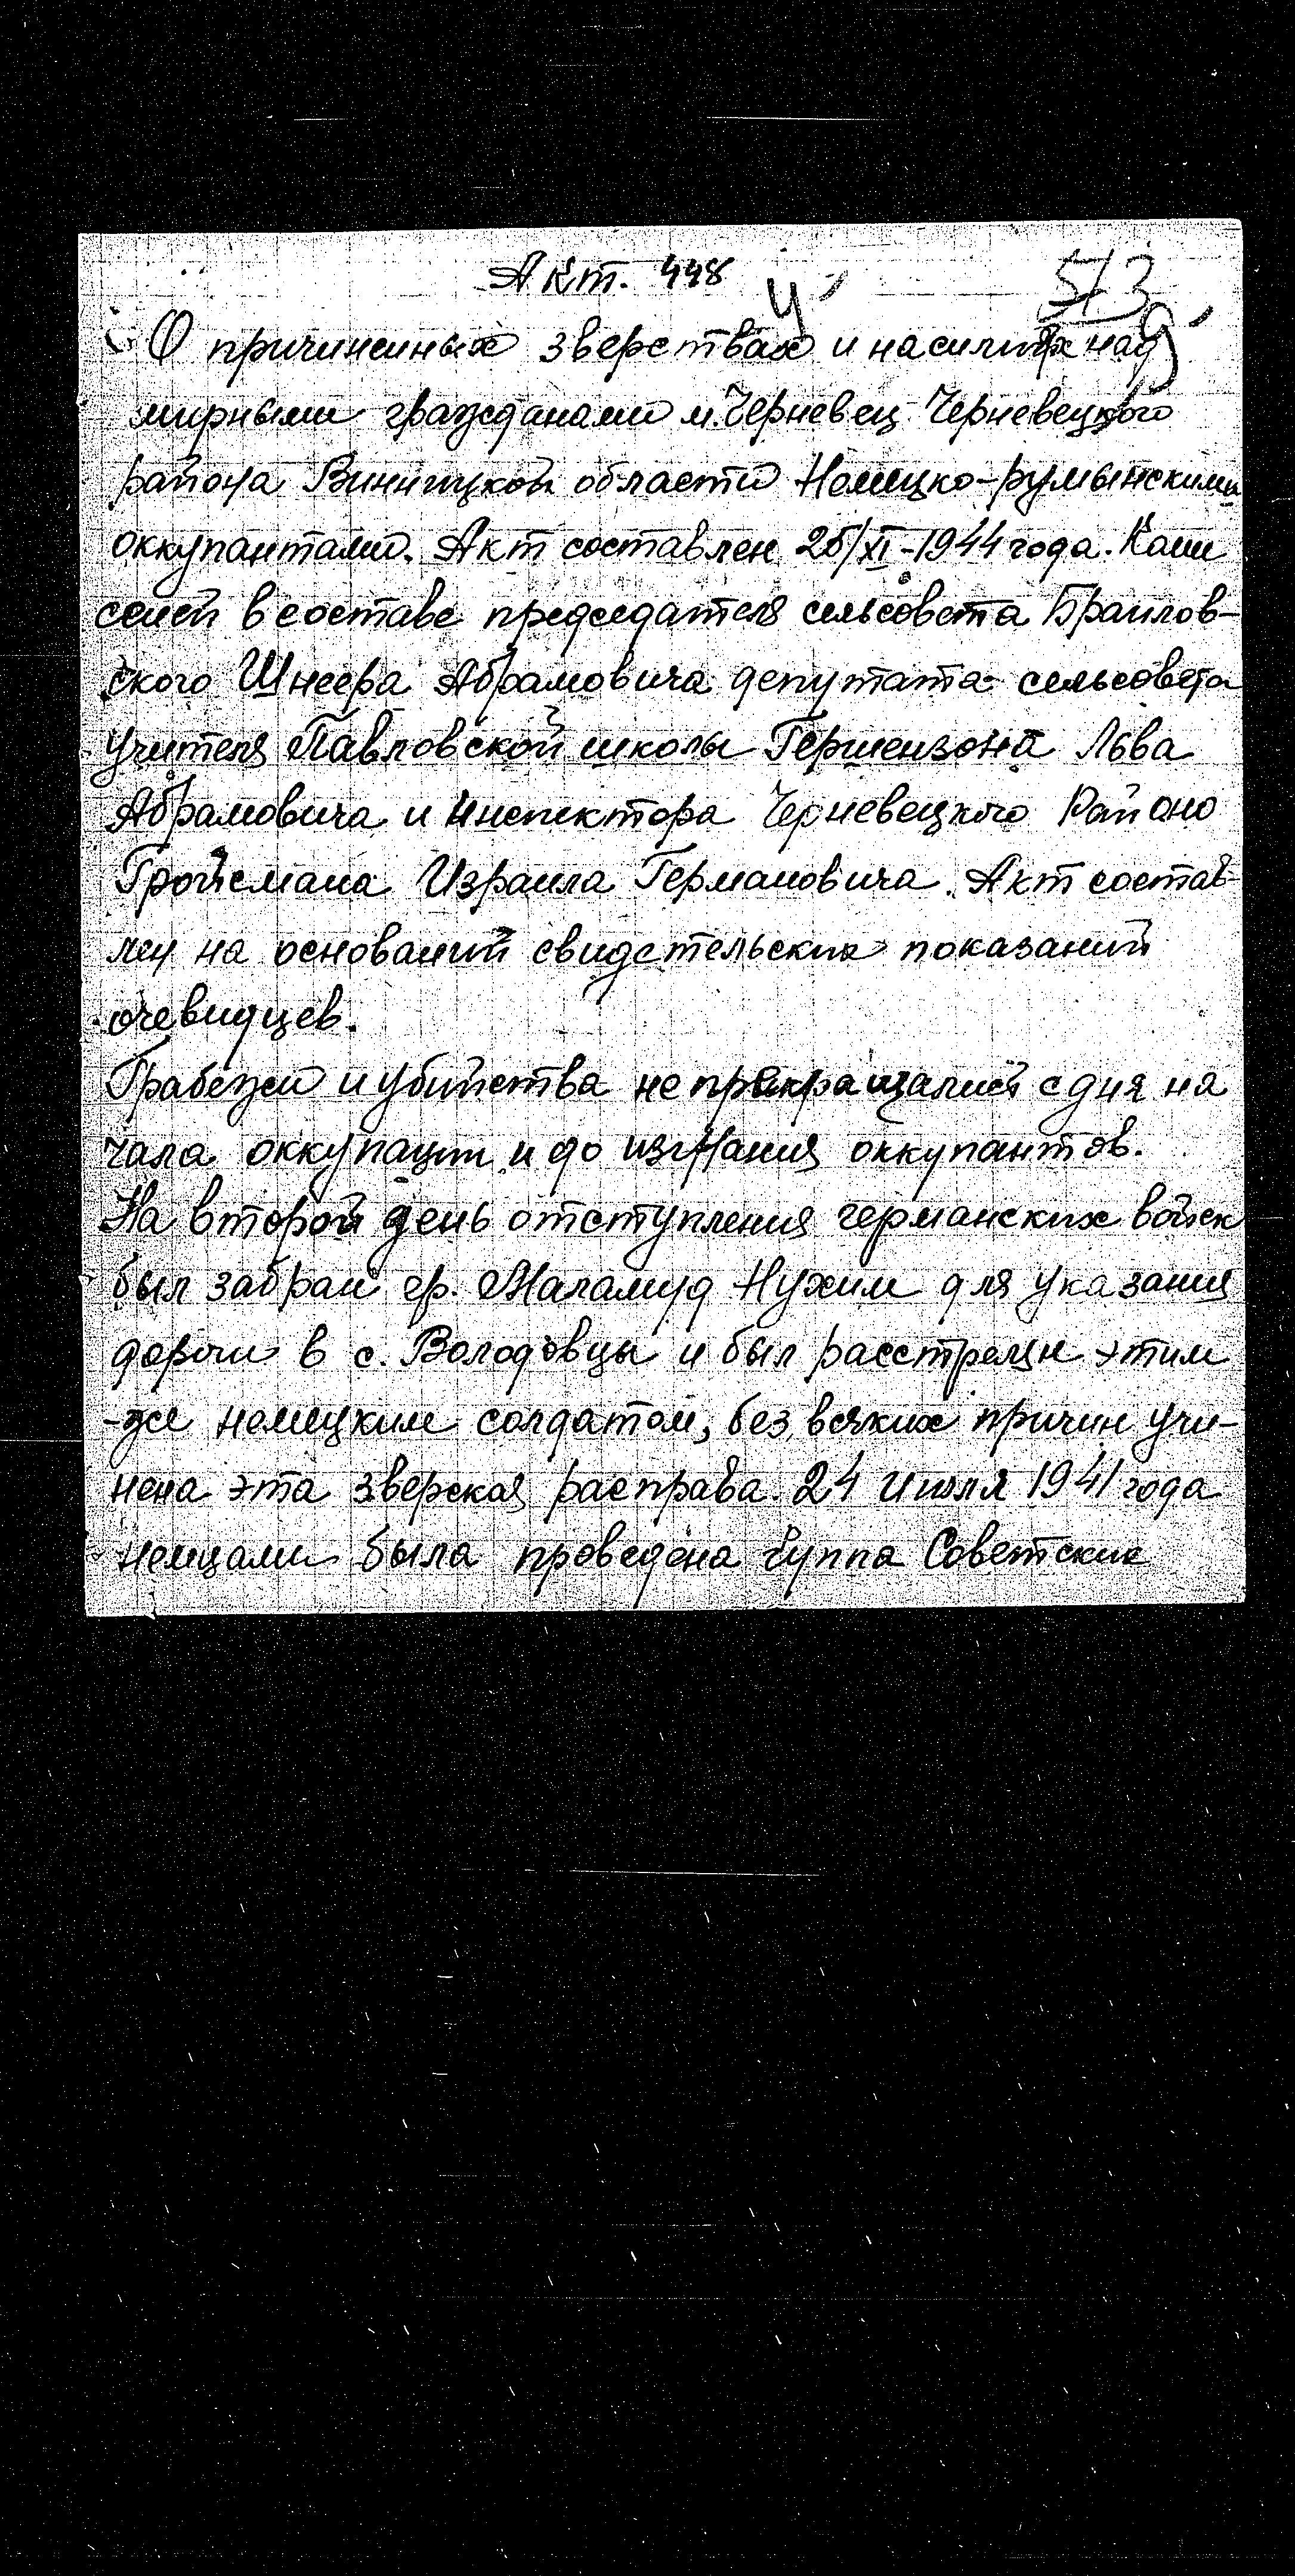 Акт. 448
513
О причиненных зверствах и насилиях над
мирными гражданами м. Черневец Черневецкого
района Винницкой области Немецко-румынскими
оккупантами. Акт составлен 25/XI-1944 года. Коми
сией в составе председателя сельсовета Браилов-
ского Шнеера Абрамовича депутата сельсовета
учителя Павловской школы Гершензона Льва
Абрамовича и инспектора Черневецкого Районо
Гройсмана Израила Германовича. Акт состав-
лен на оснований свидетельских показаний
очевидцев.
Грабежи и убийства не прекращалист с дня на
чала оккупации и до изгнания оккупантов.
На второй день отступления германских войск
был забран гр. Маламуд Нухим для указания
дороги в с. Володовцы и был расстрелян этим
-же немецким солдатом, без всяких причин учи-
нена эта зверская расправа. 24 июля 1941 года
немцами была проведена Гуппа Советских